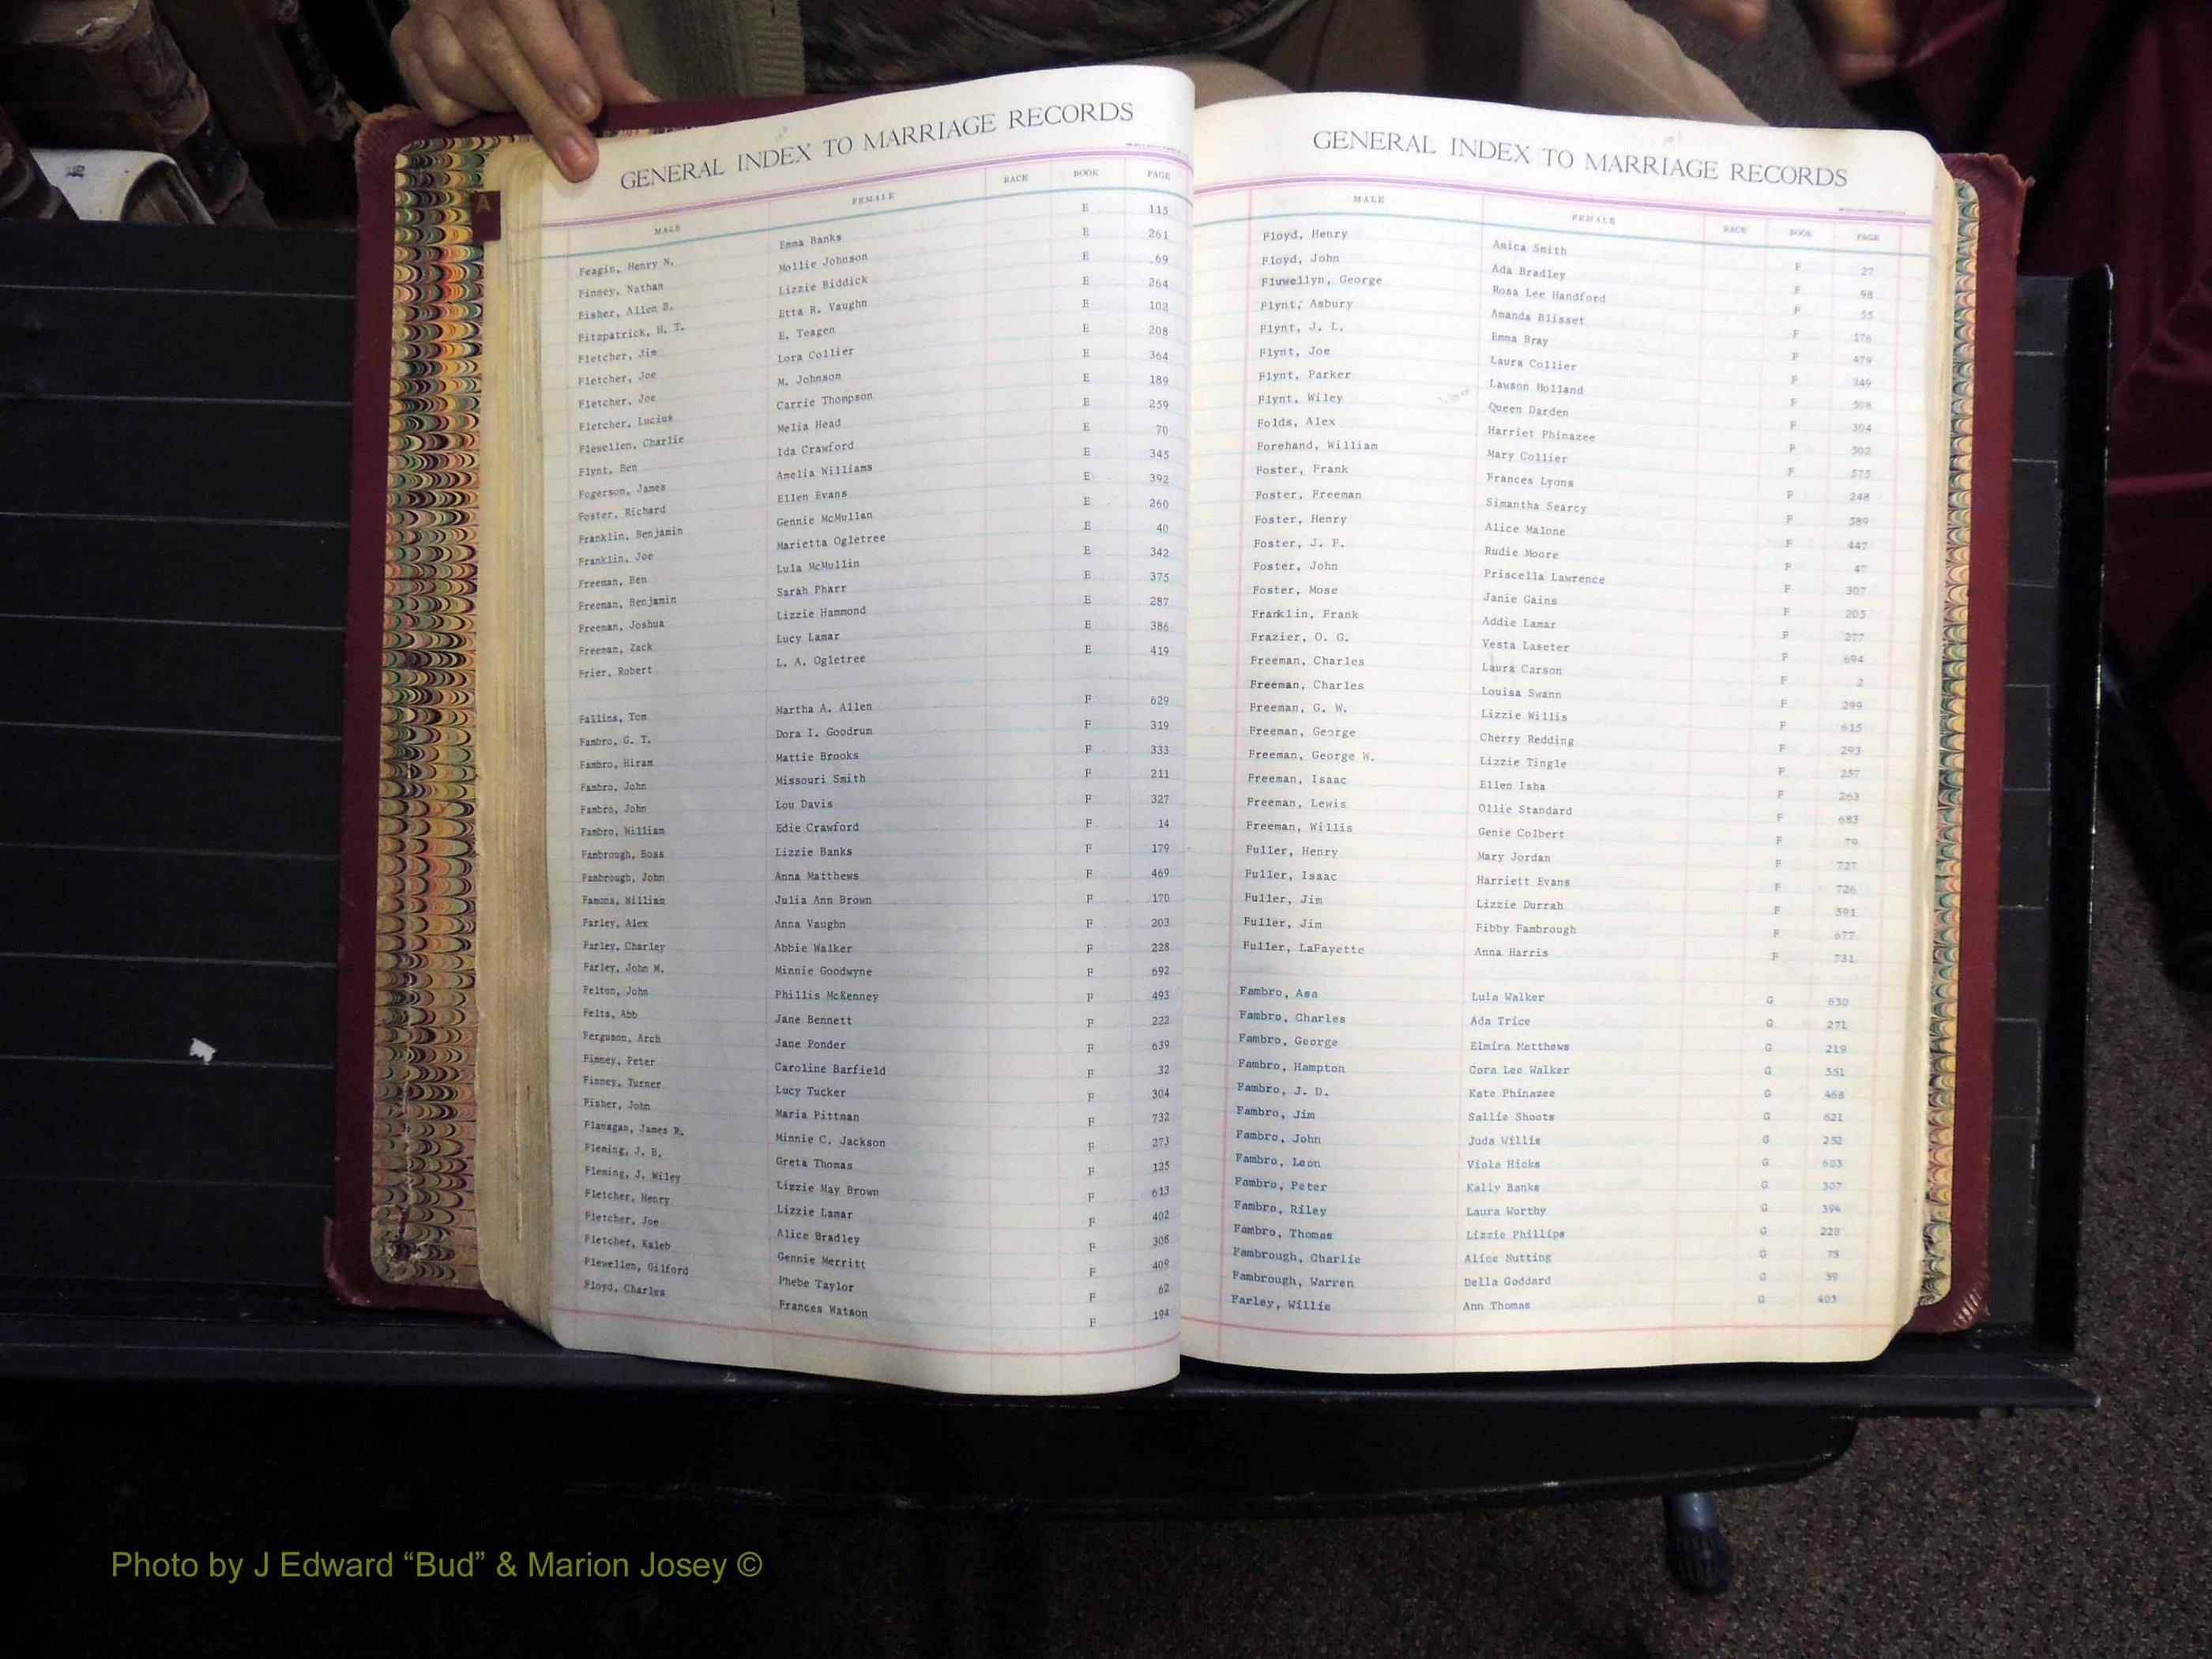 GENERAL INDEX TO MARRIAGE RECORDS
MALE FEMALE RACE BOOK PAGE
Feagin, Henry N. Emma Banks E 115
Finney, Nathan Mollie Johnson E 261
Fisher, Allen B. Lizzie Biddick E 69
Fitzpatrick, H. T. Etta R. Vaughn E 264
Fletcher, Jim E. Teagen E 102
Fletcher, Joe Lora Collier E 208
Fletcher, Joe M. Johnson E 364
Fletcher, Lucius Carrie Thompson E 189
Flewellen, Charlie Melia Head E 259
Flynt, Ben Ida Crawford E 70
Fogerson, James Amelia Williams E 345
Foster, Richard Ellen Evans E 392
Franklin, Benjamin Gennie McMullan E 260
Franklin, Joe Marietta Ogletree E 40
Freeman, Ben Lula McMullin E 342
Freeman, Benjamin Sarah Pharr E 375
Freeman, Joshua Lizzie Hammond E 287
Freeman, Zack Lucy Lamar E 386
Frier, Robert L. A. Ogletree E 419
Fallins, Tom Martha A. Allen F 629
Fambro, G. T. Dora I. Goodrum F 319
Fambro, Hiram Mattie Brooks F 333
Fambro, John Missouri Smith F 211
Fambro, John Lou Davis F 327
Fambro, William Edie Crawford F 14
Fambrough, Boss Lizzie Banks F 179
Fambrough, John Anna Matthews F 469
Famons, William Julia Ann Brown F 170
Farley, Alex Anna Vaughn F 203
Farley, Charley Abbie Walker F 228
Farley, John M. Minnie Goodwyne F 692
Felton, John Phillis McKenney F 493
Felts, Abb Jane Bennett F 222
Ferguson, Arch Jane Ponder F 639
Finney, Peter Caroline Barfield F 32
Finney, Turner Lucy Tucker F 304
Fisher, John Maria Pittman F 732
Flanagan, James R. Minnie C. Jackson F 273
Fleming, J. B. Greta Thomas F 125
Fleming, J. Wiley Lizzie May Brown F 613
Fletcher, Henry Lizzie Lamar F 402
Fletcher, Joe Alice Bradley F 308
Fletcher, Kaleb Gennie Merritt F 409
Flewellen, Gilford Phebe Taylor F 62
Floyd, Charles Frances Watson F 194
GENERAL INDEX TO MARRIAGE RECORDS
MALE FEMALE RACE BOOK PAGE
Floyd, Henry Anica Smith F 27
Floyd, John Ada Bradley F 98
Fluwellyn, George Rosa Lee Handford F 55
Flynt, Asbury Amanda Blisset F 176
Flynt, J. L. Emma Bray F 479
Flynt, Joe Laura Collier F 349
Flynt, Parker Lawson Holland F 508
Flynt, Wiley Queen Darden F 304
Folds, Alex Harriet Phinazee F 502
Forehand, William Mary Collier F 575
Foster, Frank Frances Lyons F 248
Foster, Freeman Simantha Searcy F 589
Foster, Henry Alice Malone F 447
Foster, J. F. Rudie Moore F 47
Foster, John Priscella Lawrence F 307
Foster, Mose Janie Gains F 205
Franklin, Frank Addie Lamar F 277
Frazier, O. G. Vesta Laseter F 694
Freeman, Charles Laura Carson F 2
Freeman, Charles Louisa Swann F 299
Freeman, G. W. Lizzie Willis F 615
Freeman, George Cherry Redding F 293
Freeman, George W. Lizzie Tingle F 257
Freeman, Isaac Ellen Isha F 263
Freeman, Lewis Ollie Standard F 683
Freeman, Willis Genie Colbert F 79
Fuller, Henry Mary Jordan F 727
Fuller, Isaac Harriett Evans F 726
Fuller, Jim Lizzie Durrah F 591
Fuller, Jim Fibby Fambrough F 677
Fuller, LaFayette Anna Harris F 731
Fambro, Asa Lula Walker G 630
Fambro, Charles Ada Trice G 271
Fambro, George Elmira Matthews G 219
Fambro, Hampton Cora Lee Walker G 351
Fambro, J. D. Kate Phinazee G 468
Fambro, Jim Sallie Shoots G 621
Fambro, John Juda Willis G 252
Fambro, Leon Viola Hicks G 603
Fambro, Peter Kally Banks G 307
Fambro, Riley Laura Worthy G 394
Fambro, Thomas Lizzie Phillips G 228
Fambrough, Charlie Alice Nutting G 75
Fambrough, Warren Della Goddard G 59
Farley, Willie Ann Thomas G 403
A
Photo by J Edward “Bud” & Marion Josey ©